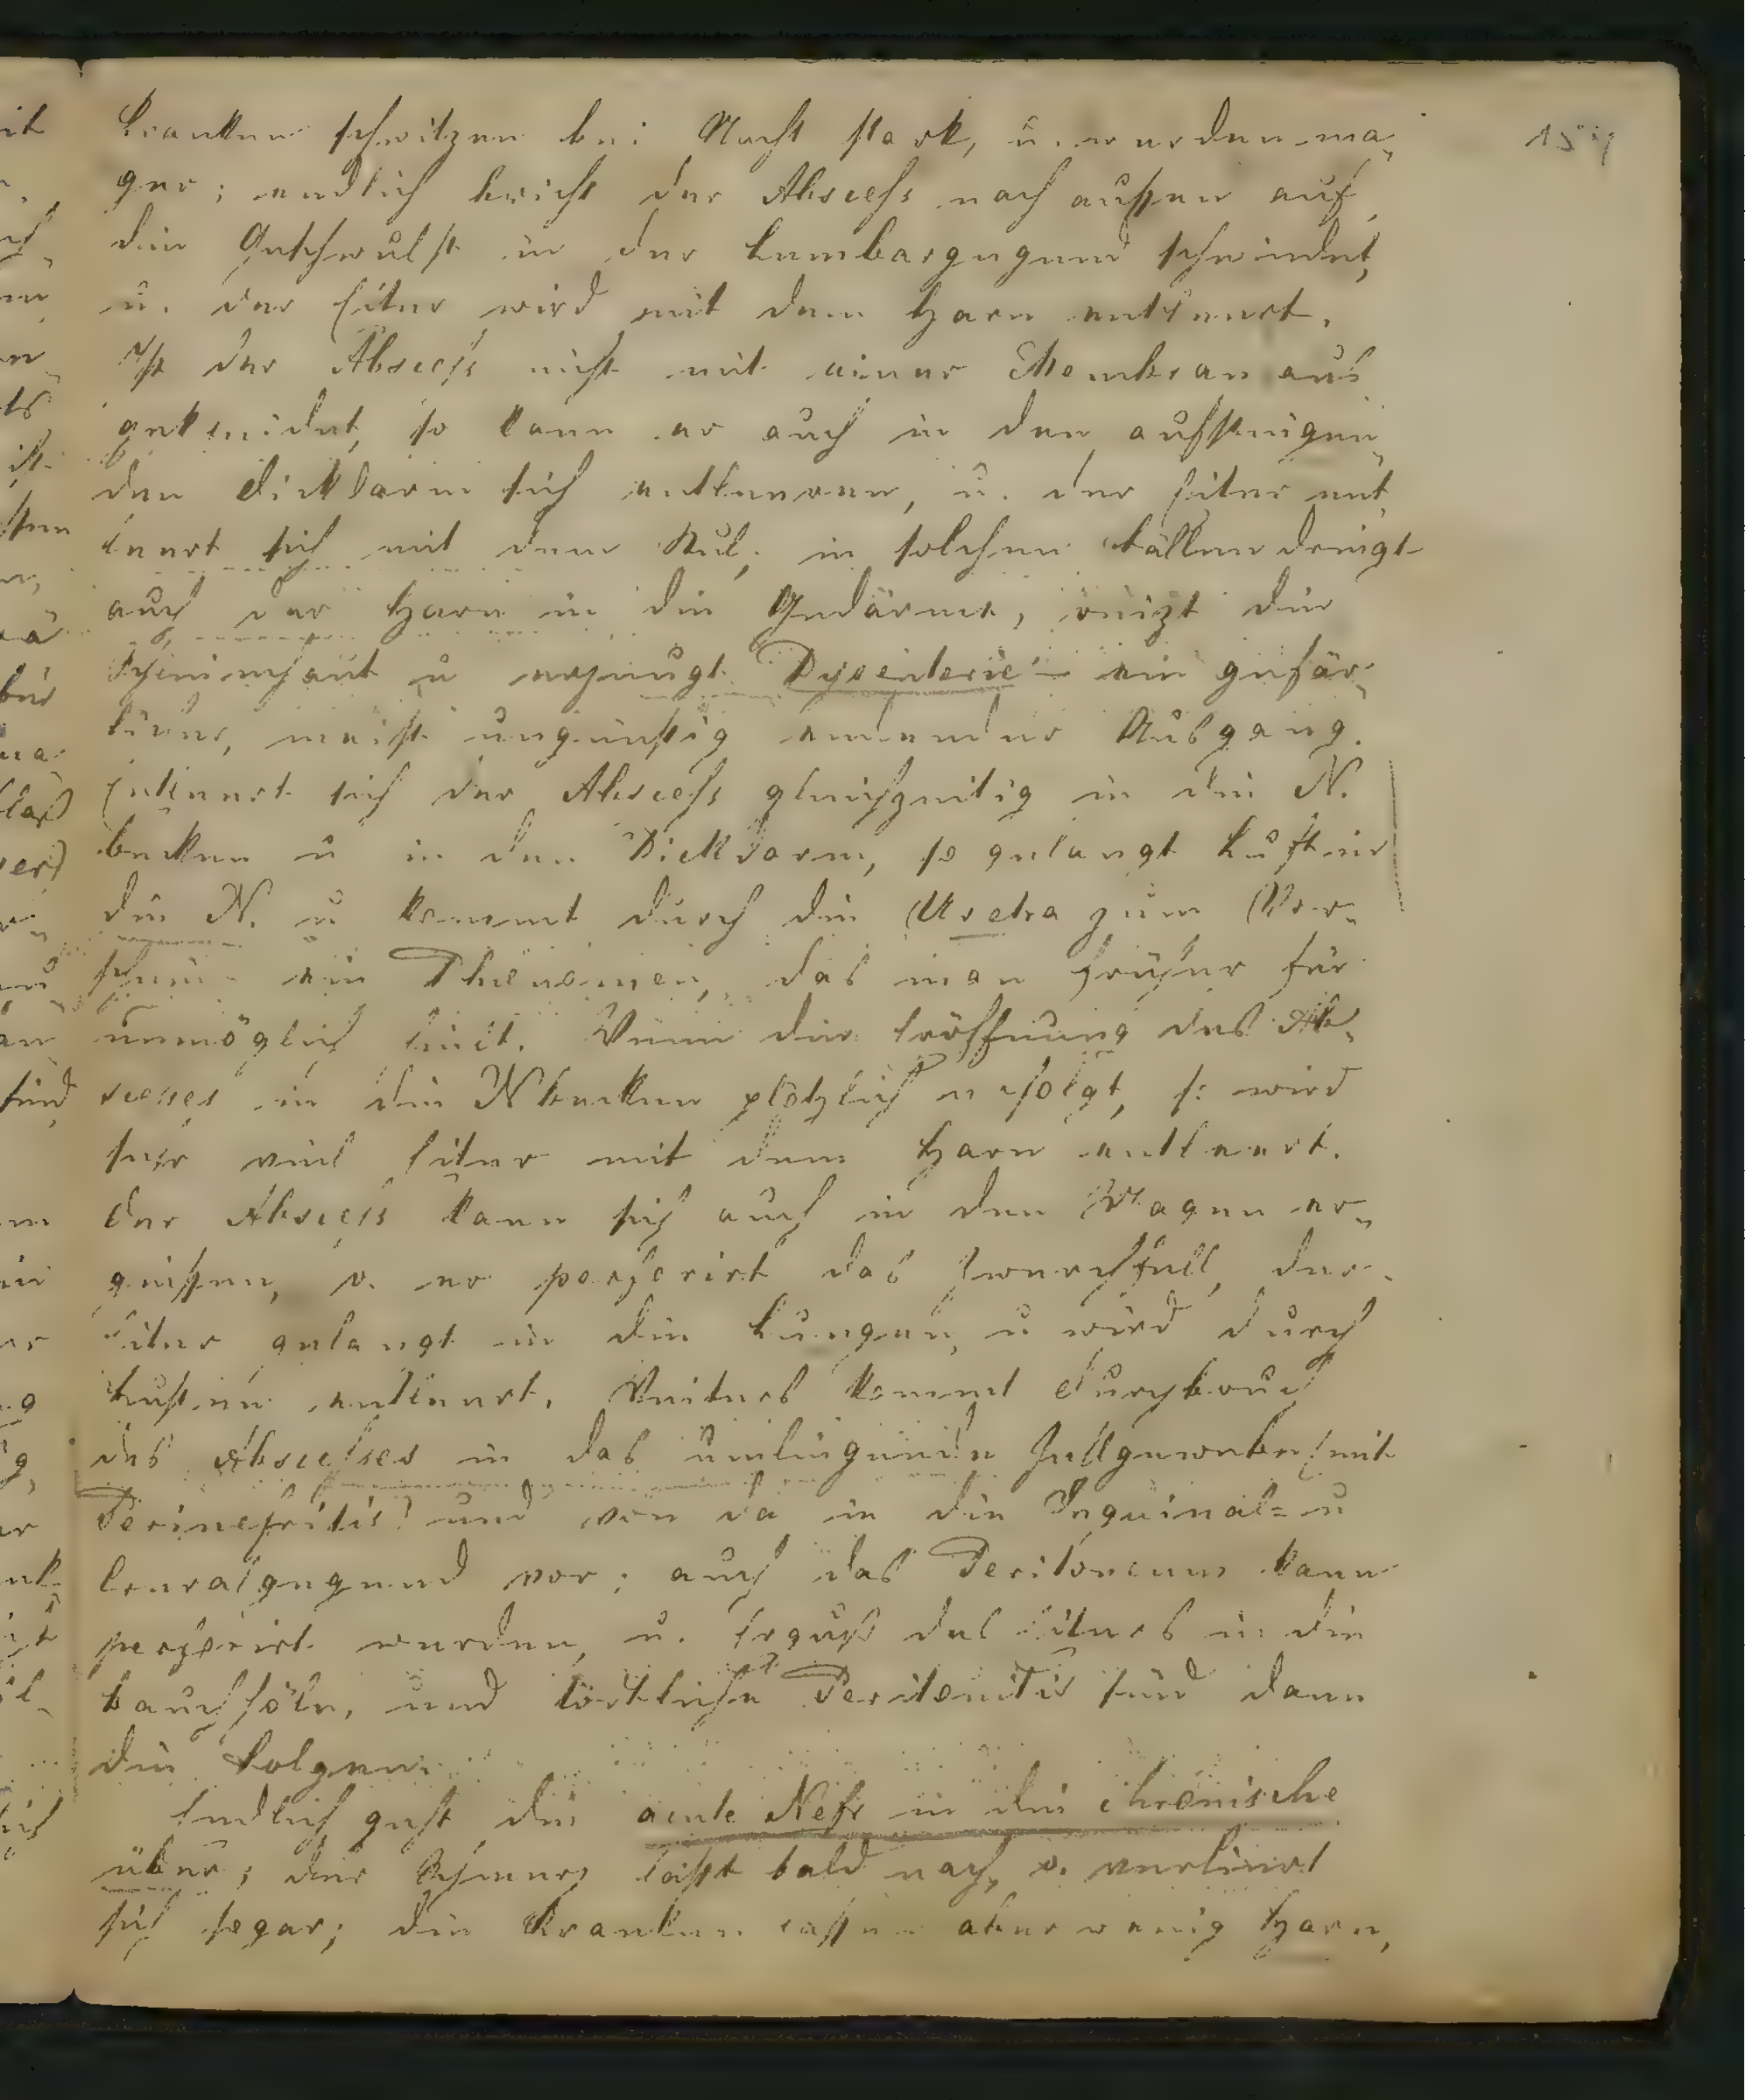 Kranken schwitzen bei Nacht stark, u. werden ma-
ger; endlich bricht der Abscess nach aussen auf,
die Geschwulst in der Lumbargegend schwindet,
u. der Eiter wird mit dem Harn entleert.
Ist der Abscess nicht mit einer Membran aus
gekleidet, so kann er auch in den aufsteigen-
den Dickdarm sich entleeren, u. der Eiter ent-
leert sich mit dem Stul; in solchen Fällen dringt
auch der Harn in die Gedärme, reizt die
Schleimhaut u erzeugt Dysenterie – ein gefär-
licher, meist ungünstig endender Ausgang.
Entleert sich der Abscess gleichzeitig in die N.
becken u in den Dickdarm, so gelangt Luft in
die N. u kommt durch die Uretra zum Vor-
schein – ein Phenomen, das man früher für
unmöglich hielt. Wenn die Eröffnung des Ab-
scesses in die Nbecken plötzlich erfolgt, so wird
sehr viel Eiter mit dem Harn entleert.
Der Abscess kann sich auch in den Magen er-
giessen, o. er perforirt das Zwerchfell, der
Eiter gelangt in die Lungen, u wird durch
Husten entleert. Weiters kommt Durchbruch
des Abscesses in das umliegende Zellgewebe (mit
Perinefritis) und von da in die Inguinal= u
Cruralgegend vor; auch das Peritoneum kann
perforirt werden, u. Erguss des Eiters in die
Bauchhöle, und tödtliche Peritonitis sind dann
die Folgen.
Endlich geht die acute Nefr in die chronische
über; der Schmerz lässt bald nach, o. verliert
sich sogar; die Kranken lassen aber wenig Harn,